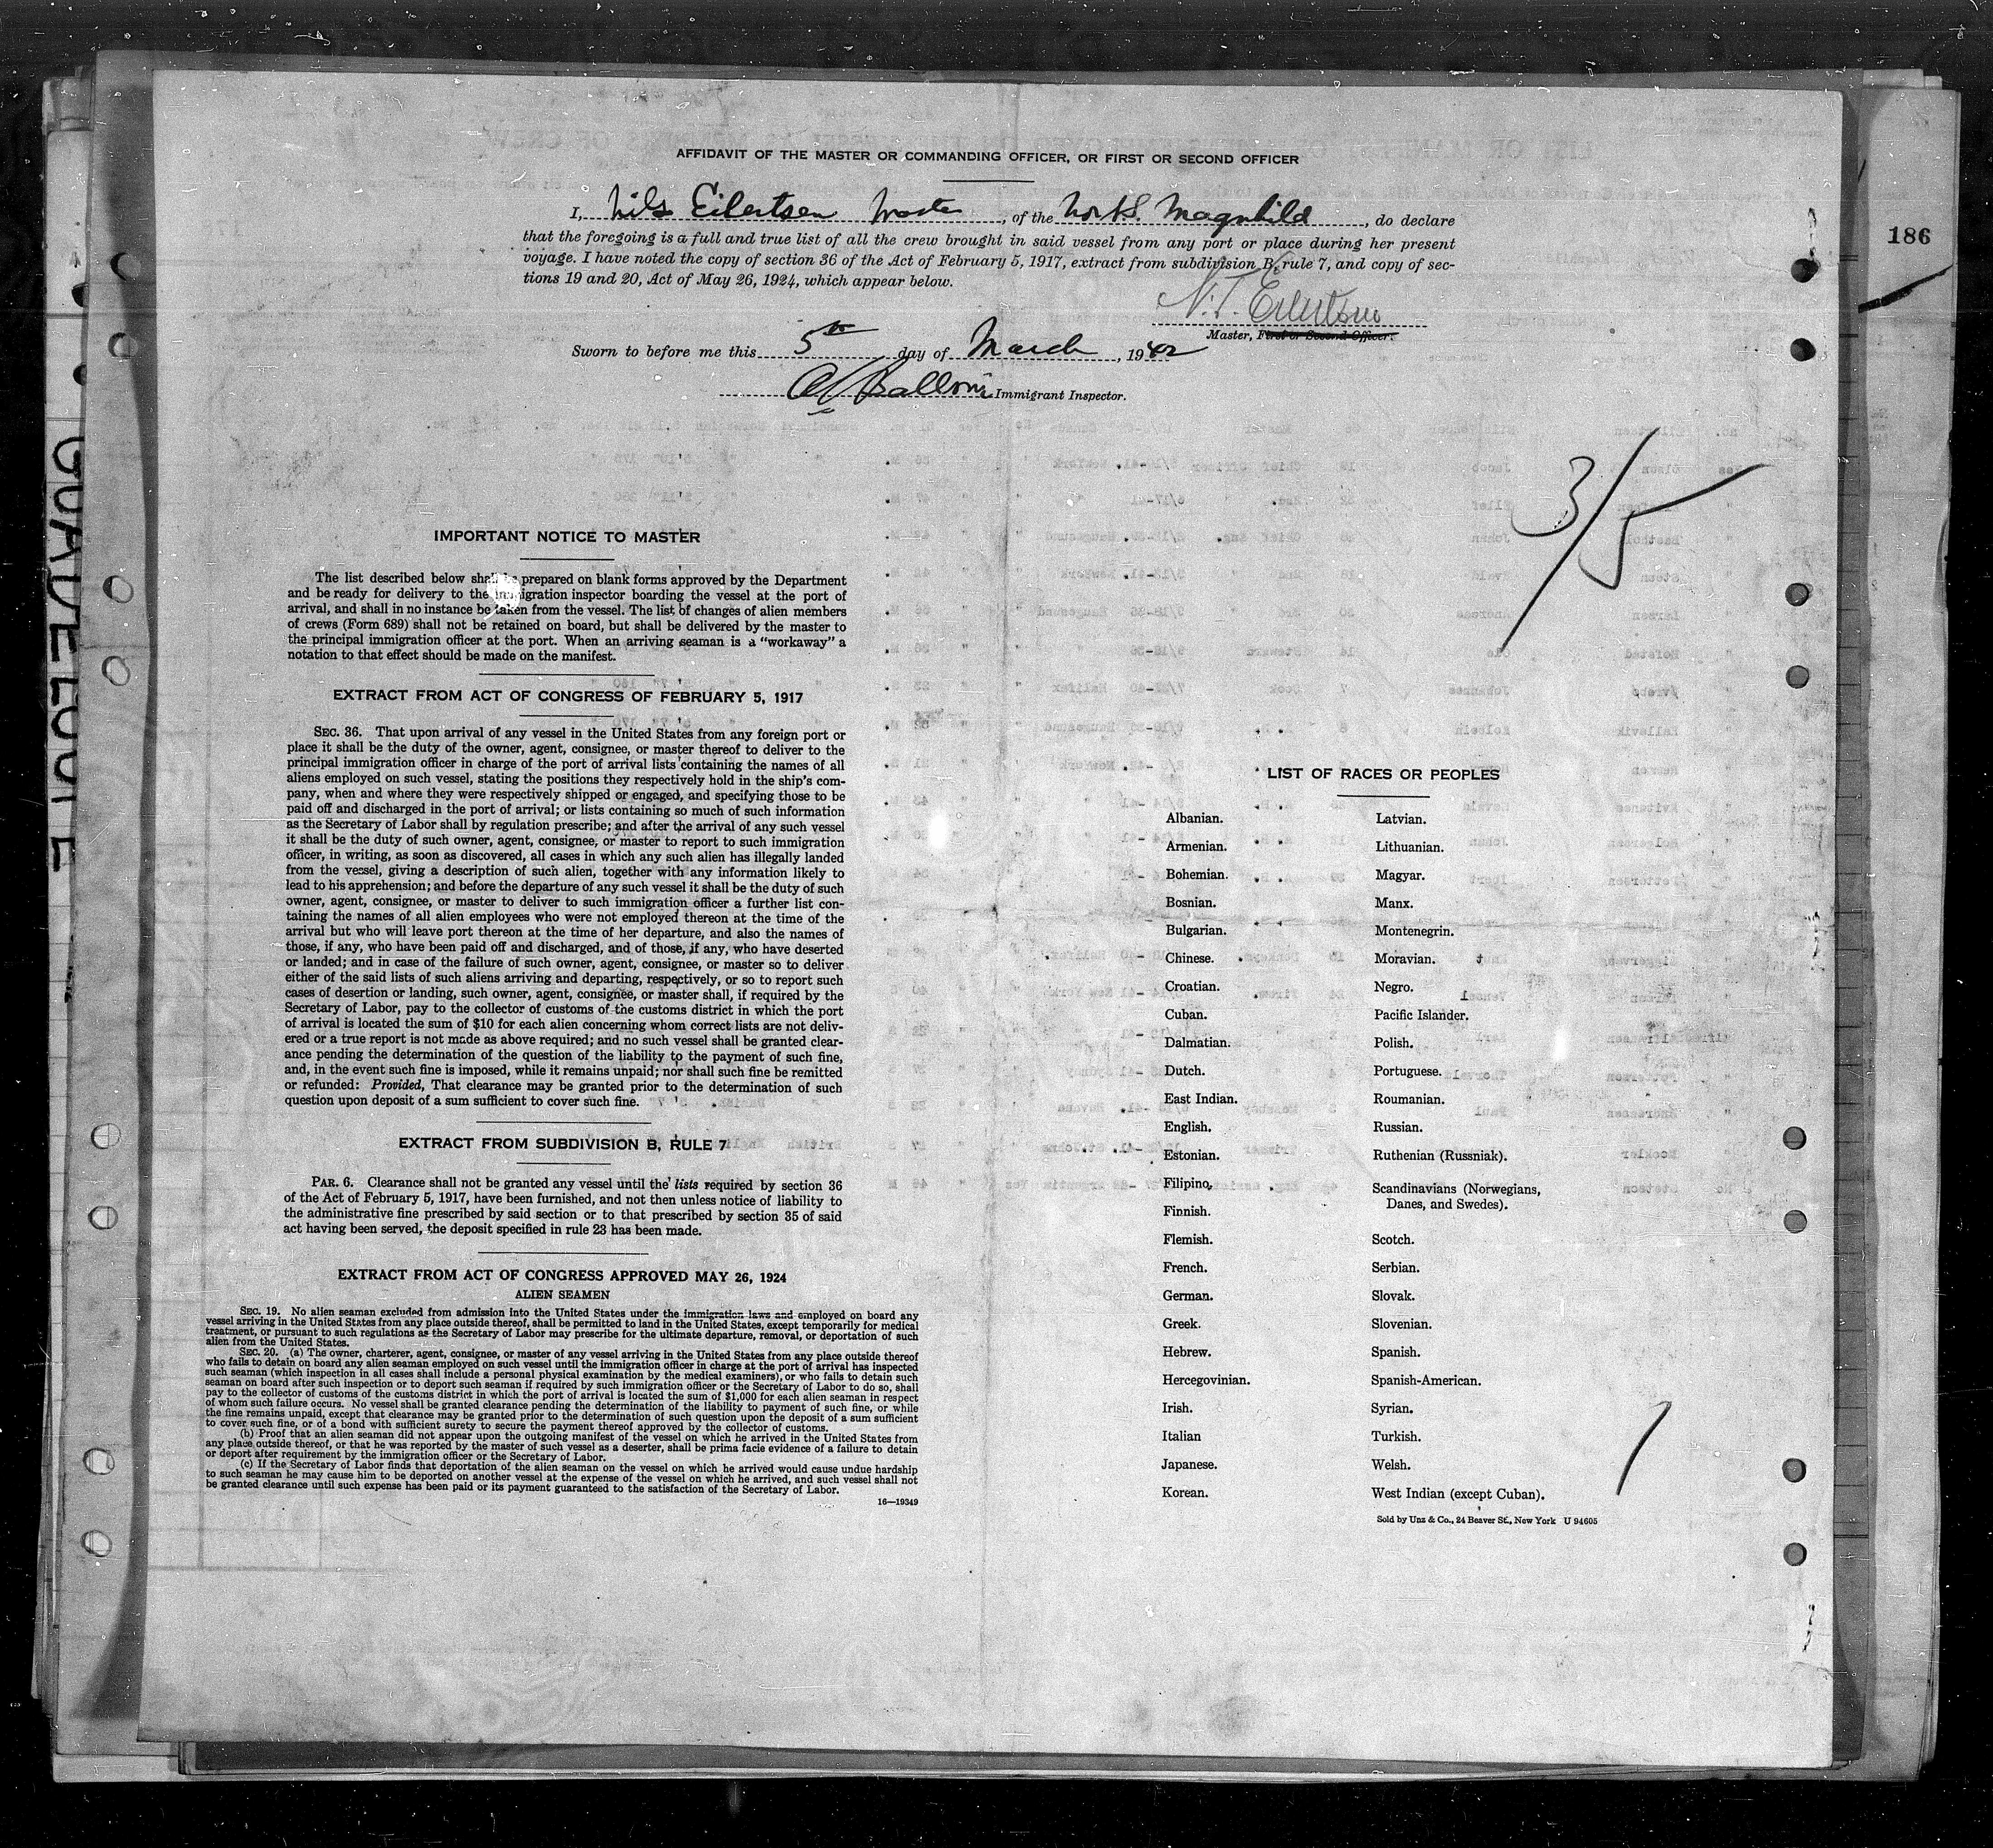 AFFIDAVIT OF THE MASTER OR COMMANDING OFFICER, OR FIRST OR SECOND OFFICER
I, Nils Eilertsen Master, of the Nor.S.S. Magnhild, do declare
that the foregoing is a full and true list of all the crew brought in said vessel from any port or place during her present
voyage. I have noted the copy of section 36 of the Act of February 5, 1917, extract from subdivision B, rule 7, and copy of sec-
tions 19 and 20, Act of May 26, 1924, which appear below.
N. T. Eilertsen
Master, First or Second Officer.
Sworn to before me this 5th day of March, 1942
Immigrant Inspector.
186
3/5
IMPORTANT NOTICE TO MASTER
The list described below shall be prepared on blank forms approved by the Department
and be ready for delivery to the immigration inspector boarding the vessel at the port of
arrival, and shall in no instance be taken from the vessel. The list of changes of alien members
of crews (Form 689) shall not be retained on board, but shall be delivered by the master to
the principal immigration officer at the port. When an arriving seaman is a “workaway” a
notation to that effect should be made on the manifest.
EXTRACT FROM ACT OF CONGRESS OF FEBRUARY 5, 1917
SEC. 36. That upon arrival of any vessel in the United States from any foreign port or
place it shall be the duty of the owner, agent, consignee, or master thereof to deliver to the
principal immigration officer in charge of the port of arrival lists containing the names of all
aliens employed on such vessel, stating the positions they respectively hold in the ship's com-
pany, when and where they were respectively shipped or engaged, and specifying those to be
paid off and discharged in the port of arrival; or lists containing so much of such information
as the Secretary of Labor shall by regulation prescribe; and after the arrival of any such vessel
it shall be the duty of such owner, agent, consignee, or master to report to such immigration
officer, in writing, as soon as discovered, all cases in which any such alien has illegally landed
from the vessel, giving a description of such alien, together with any information likely to
lead to his apprehension; and before the departure of any such vessel it shall be the duty of such
owner, agent, consignee, or master to deliver to such immigration officer a further list con-
taining the names of all alien employees who were not employed thereon at the time of the
arrival but who will leave port thereon at the time of her departure, and also the names of
those, if any, who have been paid off and discharged, and of those, if any, who have deserted
or landed; and in case of the failure of such owner, agent, consignee, or master so to deliver
either of the said lists of such aliens arriving and departing, respectively, or so to report such
cases of desertion or landing, such owner, agent, consignee, or master shall, if required by the
Secretary of Labor, pay to the collector of customs of the customs district in which the port
of arrival is located the sum of $10 for each alien concerning whom correct lists are not deliv-
ered or a true report is not made as above required; and no such vessel shall be granted clear-
ance pending the determination of the question of the liability to the payment of such fine,
and, in the event such fine is imposed, while it remains unpaid; nor shall such fine be remitted
or refunded: Provided, That clearance may be granted prior to the determination of such
question upon deposit of a sum sufficient to cover such fine.
EXTRACT FROM SUBDIVISION B, RULE 7
PAR. 6. Clearance shall not be granted any vessel until the lists required by section 36
of the Act of February 5, 1917, have been furnished, and not then unless notice of liability to
the administrative fine prescribed by said section or to that prescribed by section 35 of said
act having been served, the deposit specified in rule 23 has been made.
EXTRACT FROM ACT OF CONGRESS APPROVED MAY 26, 1924
ALIEN SEAMEN
SEC. 19. No alien seaman excluded from admission into the United States under the immigration laws and employed on board any
vessel arriving in the United States from any place outside thereof, shall be permitted to land in the United States, except temporarily for medical
treatment, or pursuant to such regulations as the Secretary of Labor may prescribe for the ultimate departure, removal, or deportation of such
alien from the United States.
SEC. 20. (a) The owner, charterer, agent, consignee, or master of any vessel arriving in the United States from any place outside thereof
who fails to detain on board any alien seaman employed on such vessel until the immigration officer in charge at the port of arrival has inspected
such seaman (which inspection in all cases shall include a personal physical examination by the medical examiners), or who fails to detain such
seaman on board after such inspection or to deport such seaman if required by such immigration officer or the Secretary of Labor to do so, shall
pay to the collector of customs of the customs district in which the port of arrival is located the sum of $1,000 for each alien seaman in respect
of whom such failure occurs. No vessel shall be granted clearance pending the determination of the liability to payment of such fine, or while
the fine remains unpaid, except that clearance may be granted prior to the determination of such question upon the deposit of a sum sufficient
to cover such fine, or of a bond with sufficient surety to secure the payment thereof approved by the collector of customs.
(b) Proof that an alien seaman did not appear upon the outgoing manifest of the vessel on which he arrived in the United States from
any place outside thereof, or that he was reported by the master of such vessel as a deserter, shall be prima facie evidence of a failure to detain
or deport after requirement by the immigration officer or the Secretary of Labor.
(c) If the Secretary of Labor finds that deportation of the alien seaman on the vessel on which he arrived would cause undue hardship
to such seaman he may cause him to be deported on another vessel at the expense of the vessel on which he arrived, and such vessel shall not
be granted clearance until such expense has been paid or its payment guaranteed to the satisfaction of the Secretary of Labor.
16—19349
LIST OF RACES OR PEOPLES
Albanian.
Armenian.
Bohemian.
Bosnian.
Bulgarian.
Chinese.
Croatian.
Cuban.
Dalmatian.
Dutch.
East Indian.
English.
Estonian.
Filipino.
Finnish.
Flemish.
French.
German.
Greek.
Hebrew.
Hercegovinian.
Irish.
Italian
Japanese.
Korean.
Latvian.
Lithuanian.
Magyar.
Manx.
Montenegrin.
Moravian.
Negro.
Pacific Islander.
Polish.
Portuguese.
Roumanian.
Russian.
Ruthenian (Russniak).
Scandinavians (Norwegians,
Danes, and Swedes).
Scotch.
Serbian.
Slovak.
Slovenian.
Spanish.
Spanish-American.
Syrian.
Turkish.
Welsh.
West Indian (except Cuban).
Sold by Unz & Co., 24 Beaver St., New York U 94605